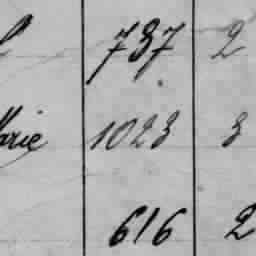 737 2
arie 1023 3
616 2